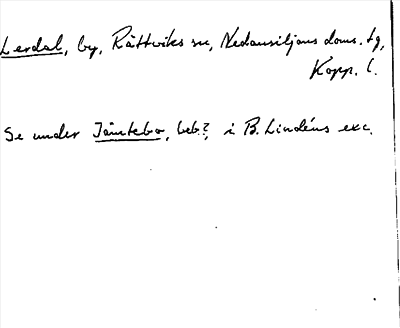 Lerdal, by, Rättviks sn, Nedansiljans doms. tg,
Kopp. l.
Se under Jämtebo, beb.?, i B. Lindéns exc.